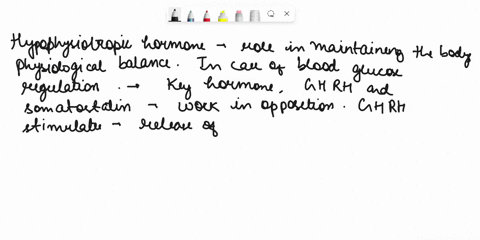 Hypophysiotropic hormone → role in maintaining the body
physiological balance. In case of blood glucose
regulation. → Key hormone, GHRH and
somatostatin → work in opposition. GHRH
stimulate → release of